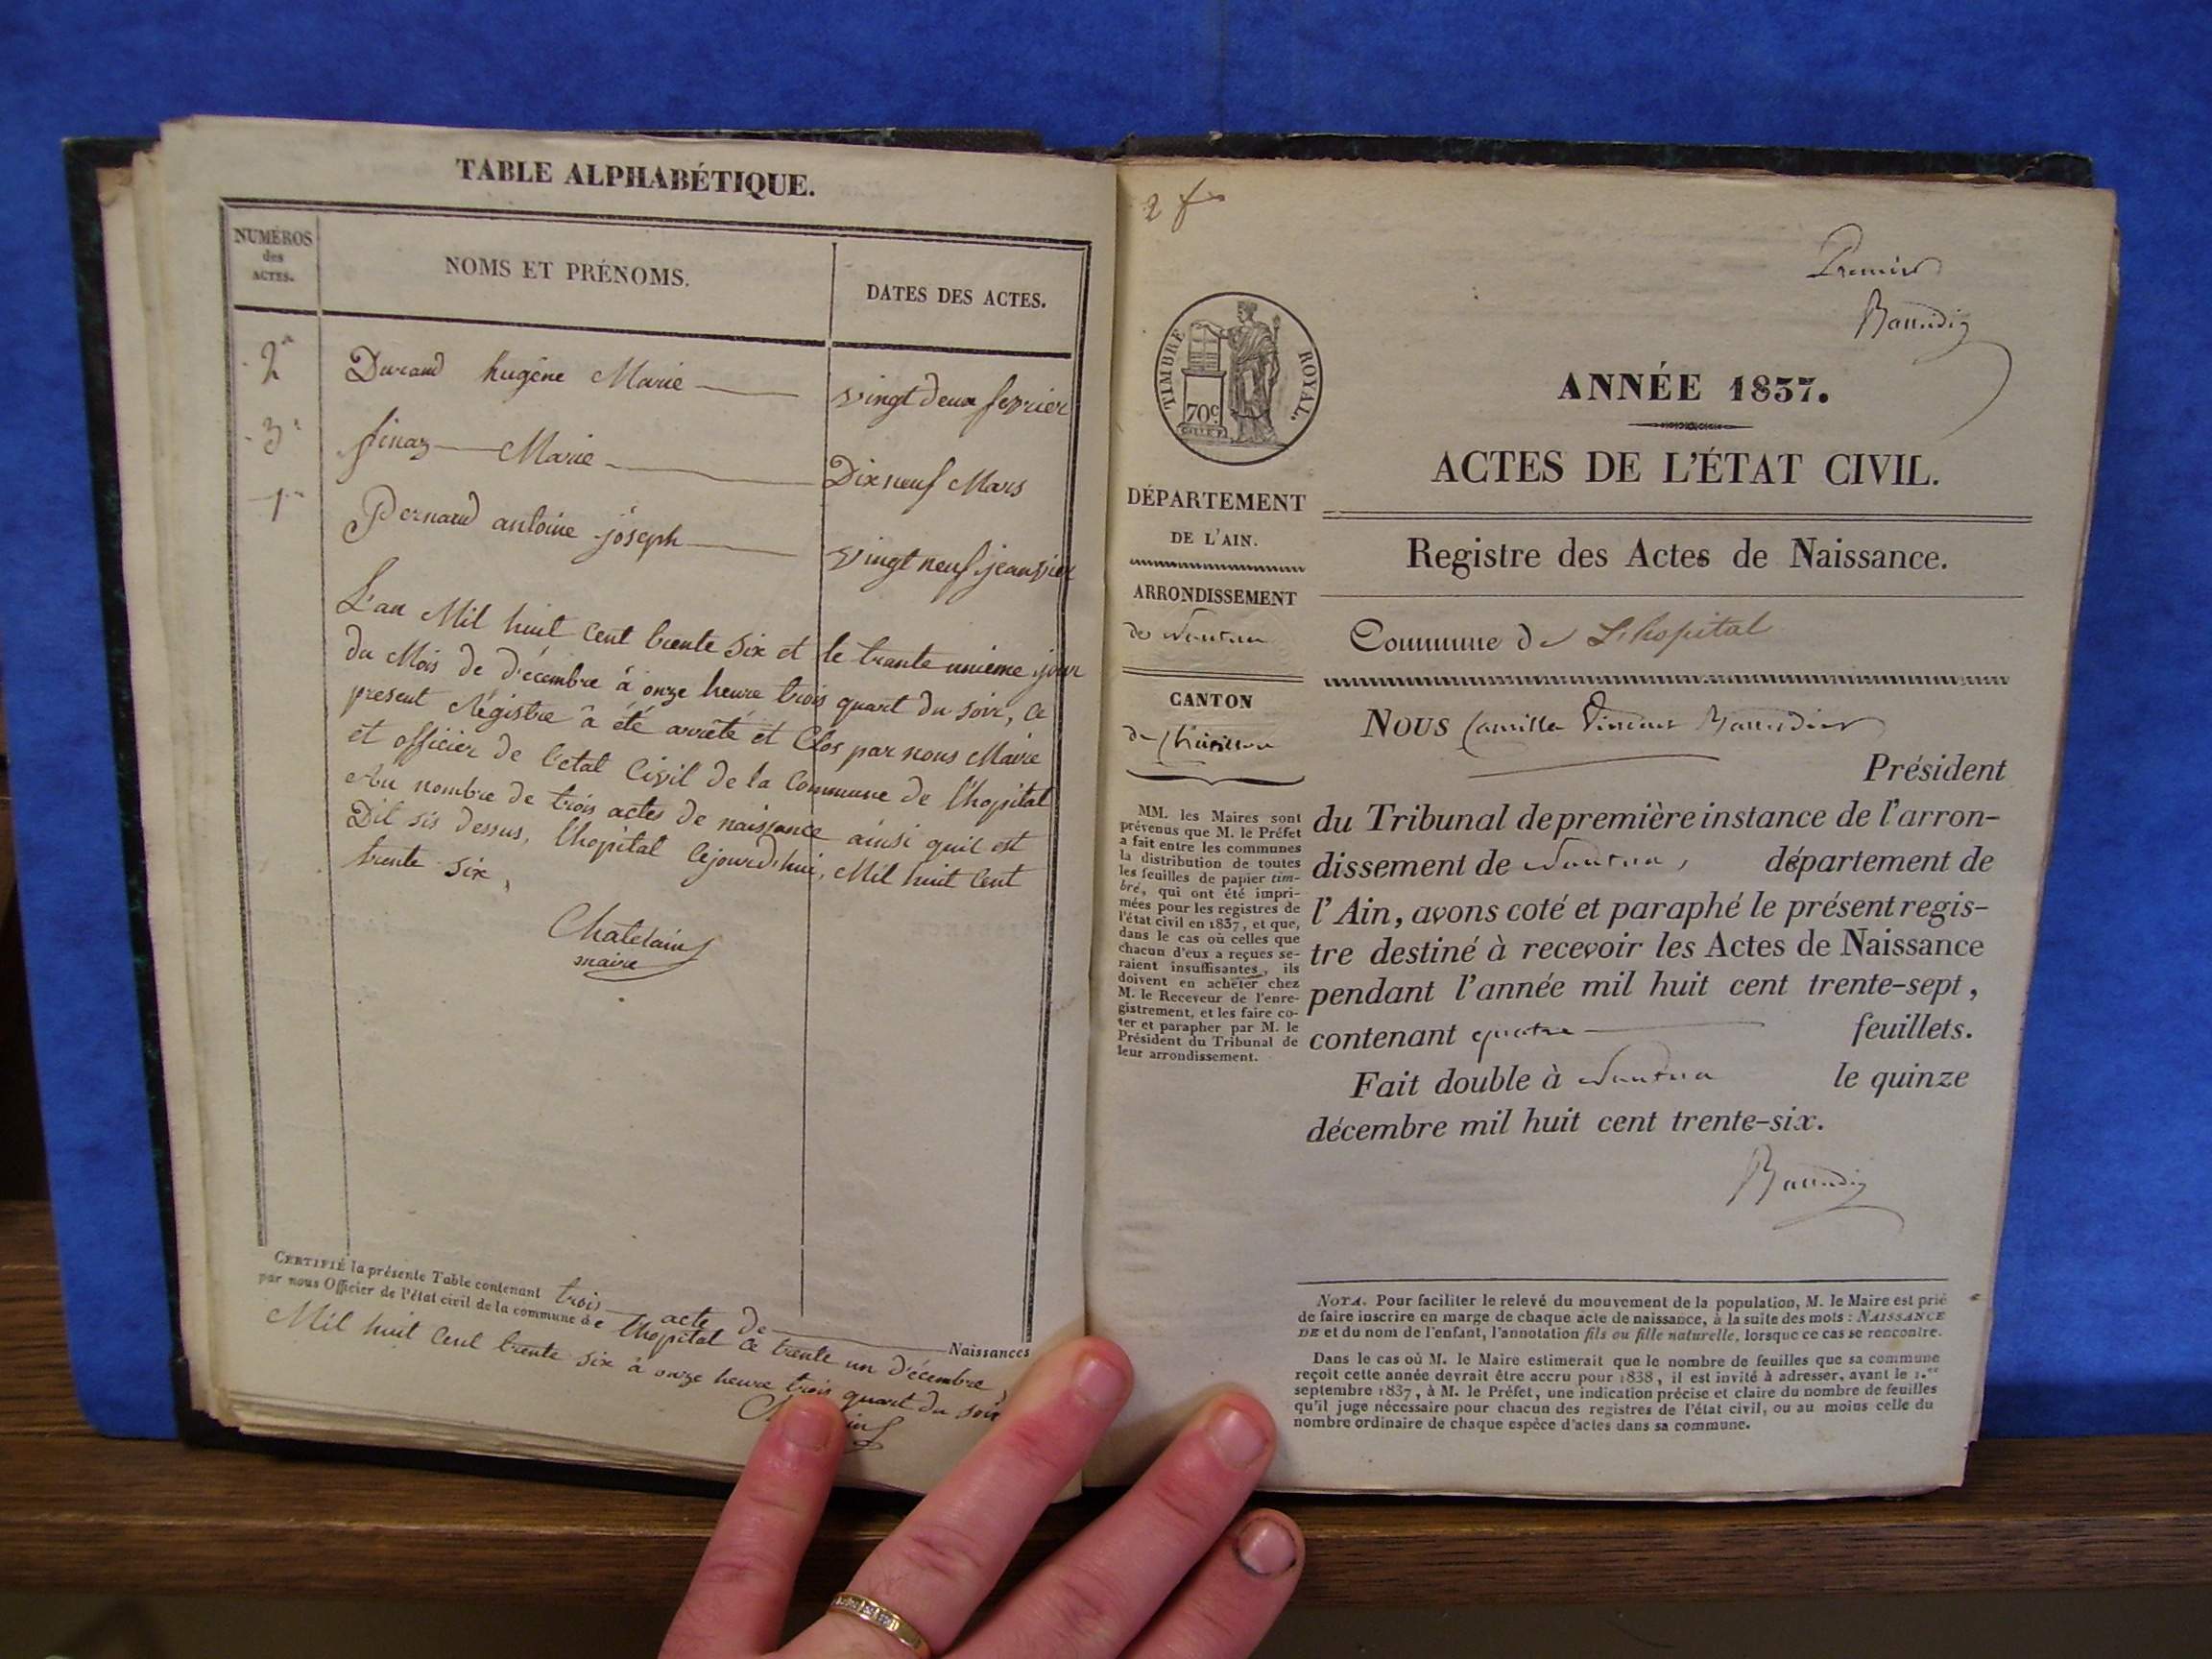 TABLE ALPHABÉTIQUE.
NUMÉROS
des
ACTES.
NOMS ET PRÉNOMS.
DATES DES ACTES.
2 Durand hugêne Marie vingt deux fevrier
3 finaz Marie Dix neuf Mars
1 Pernard antoine joseph vingt neuf jeanvier
L'an Mil huit Cent trente Six et le trante unième jour
du Mois de décembre à onze heure trois quart du soir, Ce
present Régistre à été arrêté et Clos par nous Maire
et officier de l'etat Civil de la Commune de l'hopital
Au nombre de trois actes de naissance ainsi quil est
Dit sis dessus, l'hopital Cejourd'hui, Mil huit Cent
trente Six,
Chatelain
maire
CERTIFIÉ la présente Table contenant trois acte de Naissances
par nous Officier de l'état civil de la commune de l'hopital Ce trente un décembre,
Mil huit Cent trente Six à onze heure trois quart du soir
2 f
Premier
TIMBRE ROYAL.
70 c
ANNÉE 1837.
ACTES DE L'ÉTAT CIVIL.
DÉPARTEMENT
DE L'AIN.
ARRONDISSEMENT
de Nantua
CANTON
de
MM. les Maires sont
prévenus que M. le Préfet
a fait entre les communes
la distribution de toutes
les feuilles de papier tim-
bré, qui ont été impri-
mées pour les registres de
l'état civil en 1837, et que,
dans le cas où celles que
chacun d'eux a reçues se-
raient insuffisantes, ils
doivent en acheter chez
M. le Receveur de l'enre-
gistrement, et les faire co-
ter et parapher par M. le
Président du Tribunal de
leur arrondissement.
Registre des Actes de Naissance.
Commune de L'hopital
Nous Camille Vincent
Président
du Tribunal de première instance de l'arron-
dissement de Nantua, département de
l'Ain, avons coté et paraphé le présent regis-
tre destiné à recevoir les Actes de Naissance
pendant l'année mil huit cent trente-sept,
contenant quatre feuillets.
Fait double à Nantua le quinze
décembre mil huit cent trente-six.
NOTA. Pour faciliter le relevé du mouvement de la population, M. le Maire est prié
de faire inscrire en marge de chaque acte de naissance, à la suite des mots : NAISSANCE
DE et du nom de l'enfant, l'annotation fils ou fille naturelle, lorsque ce cas se rencontre.
Dans le cas où M. le Maire estimerait que le nombre de feuilles que sa commune
reçoit cette année devrait être accru pour 1838, il est invité à adresser, avant le 1.er
septembre 1837, à M. le Préfet, une indication précise et claire du nombre de feuilles
qu'il juge nécessaire pour chacun des registres de l'état civil, ou au moins celle du
nombre ordinaire de chaque espèce d'actes dans sa commune.